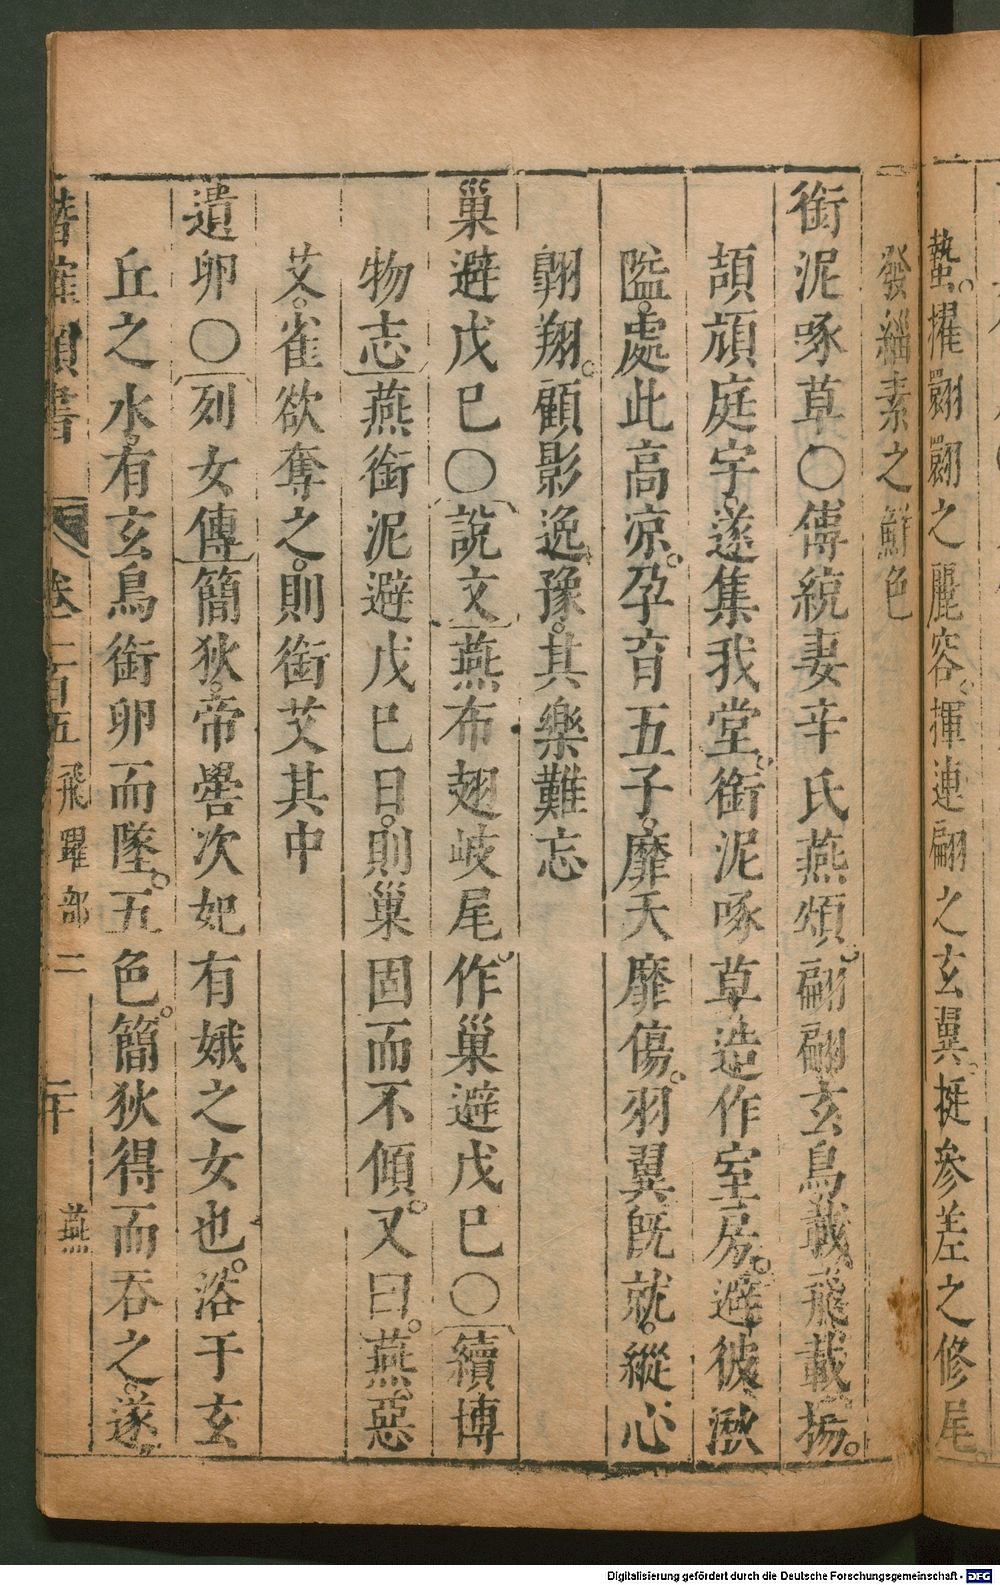 蟄。擢翾翾之麗容。揮連翩之玄翼。挺參差之修尾。
發緇素之鮮色
銜泥啄草〇傅統妻辛氏燕頌。翩翩玄鳥。載飛載揚。
頡頏庭宇。遂集我堂。銜泥啄草。造作室房。避彼湫
隘。處此高凉。孕育五子。靡夭靡傷。羽翼旣就。縱心
翺翔。顧影逸豫。其樂難忘
巢避戊巳〇說文燕布翅岐尾。作巢避戊巳〇續博
物志燕銜泥避戊巳日。則巢固而不傾。又曰。燕惡
艾。雀欲奪之。則銜艾其中
遺卵〇列女傳簡狄。帝嚳次妃有娀之女也。浴于玄
丘之水。有玄鳥銜卵而墜。五色。簡狄得而吞之。遂
卷二百五 飛躍部二 燕 二十
Digitalisierung gefördert durch die Deutsche Forschungsgemeinschaft - DFG